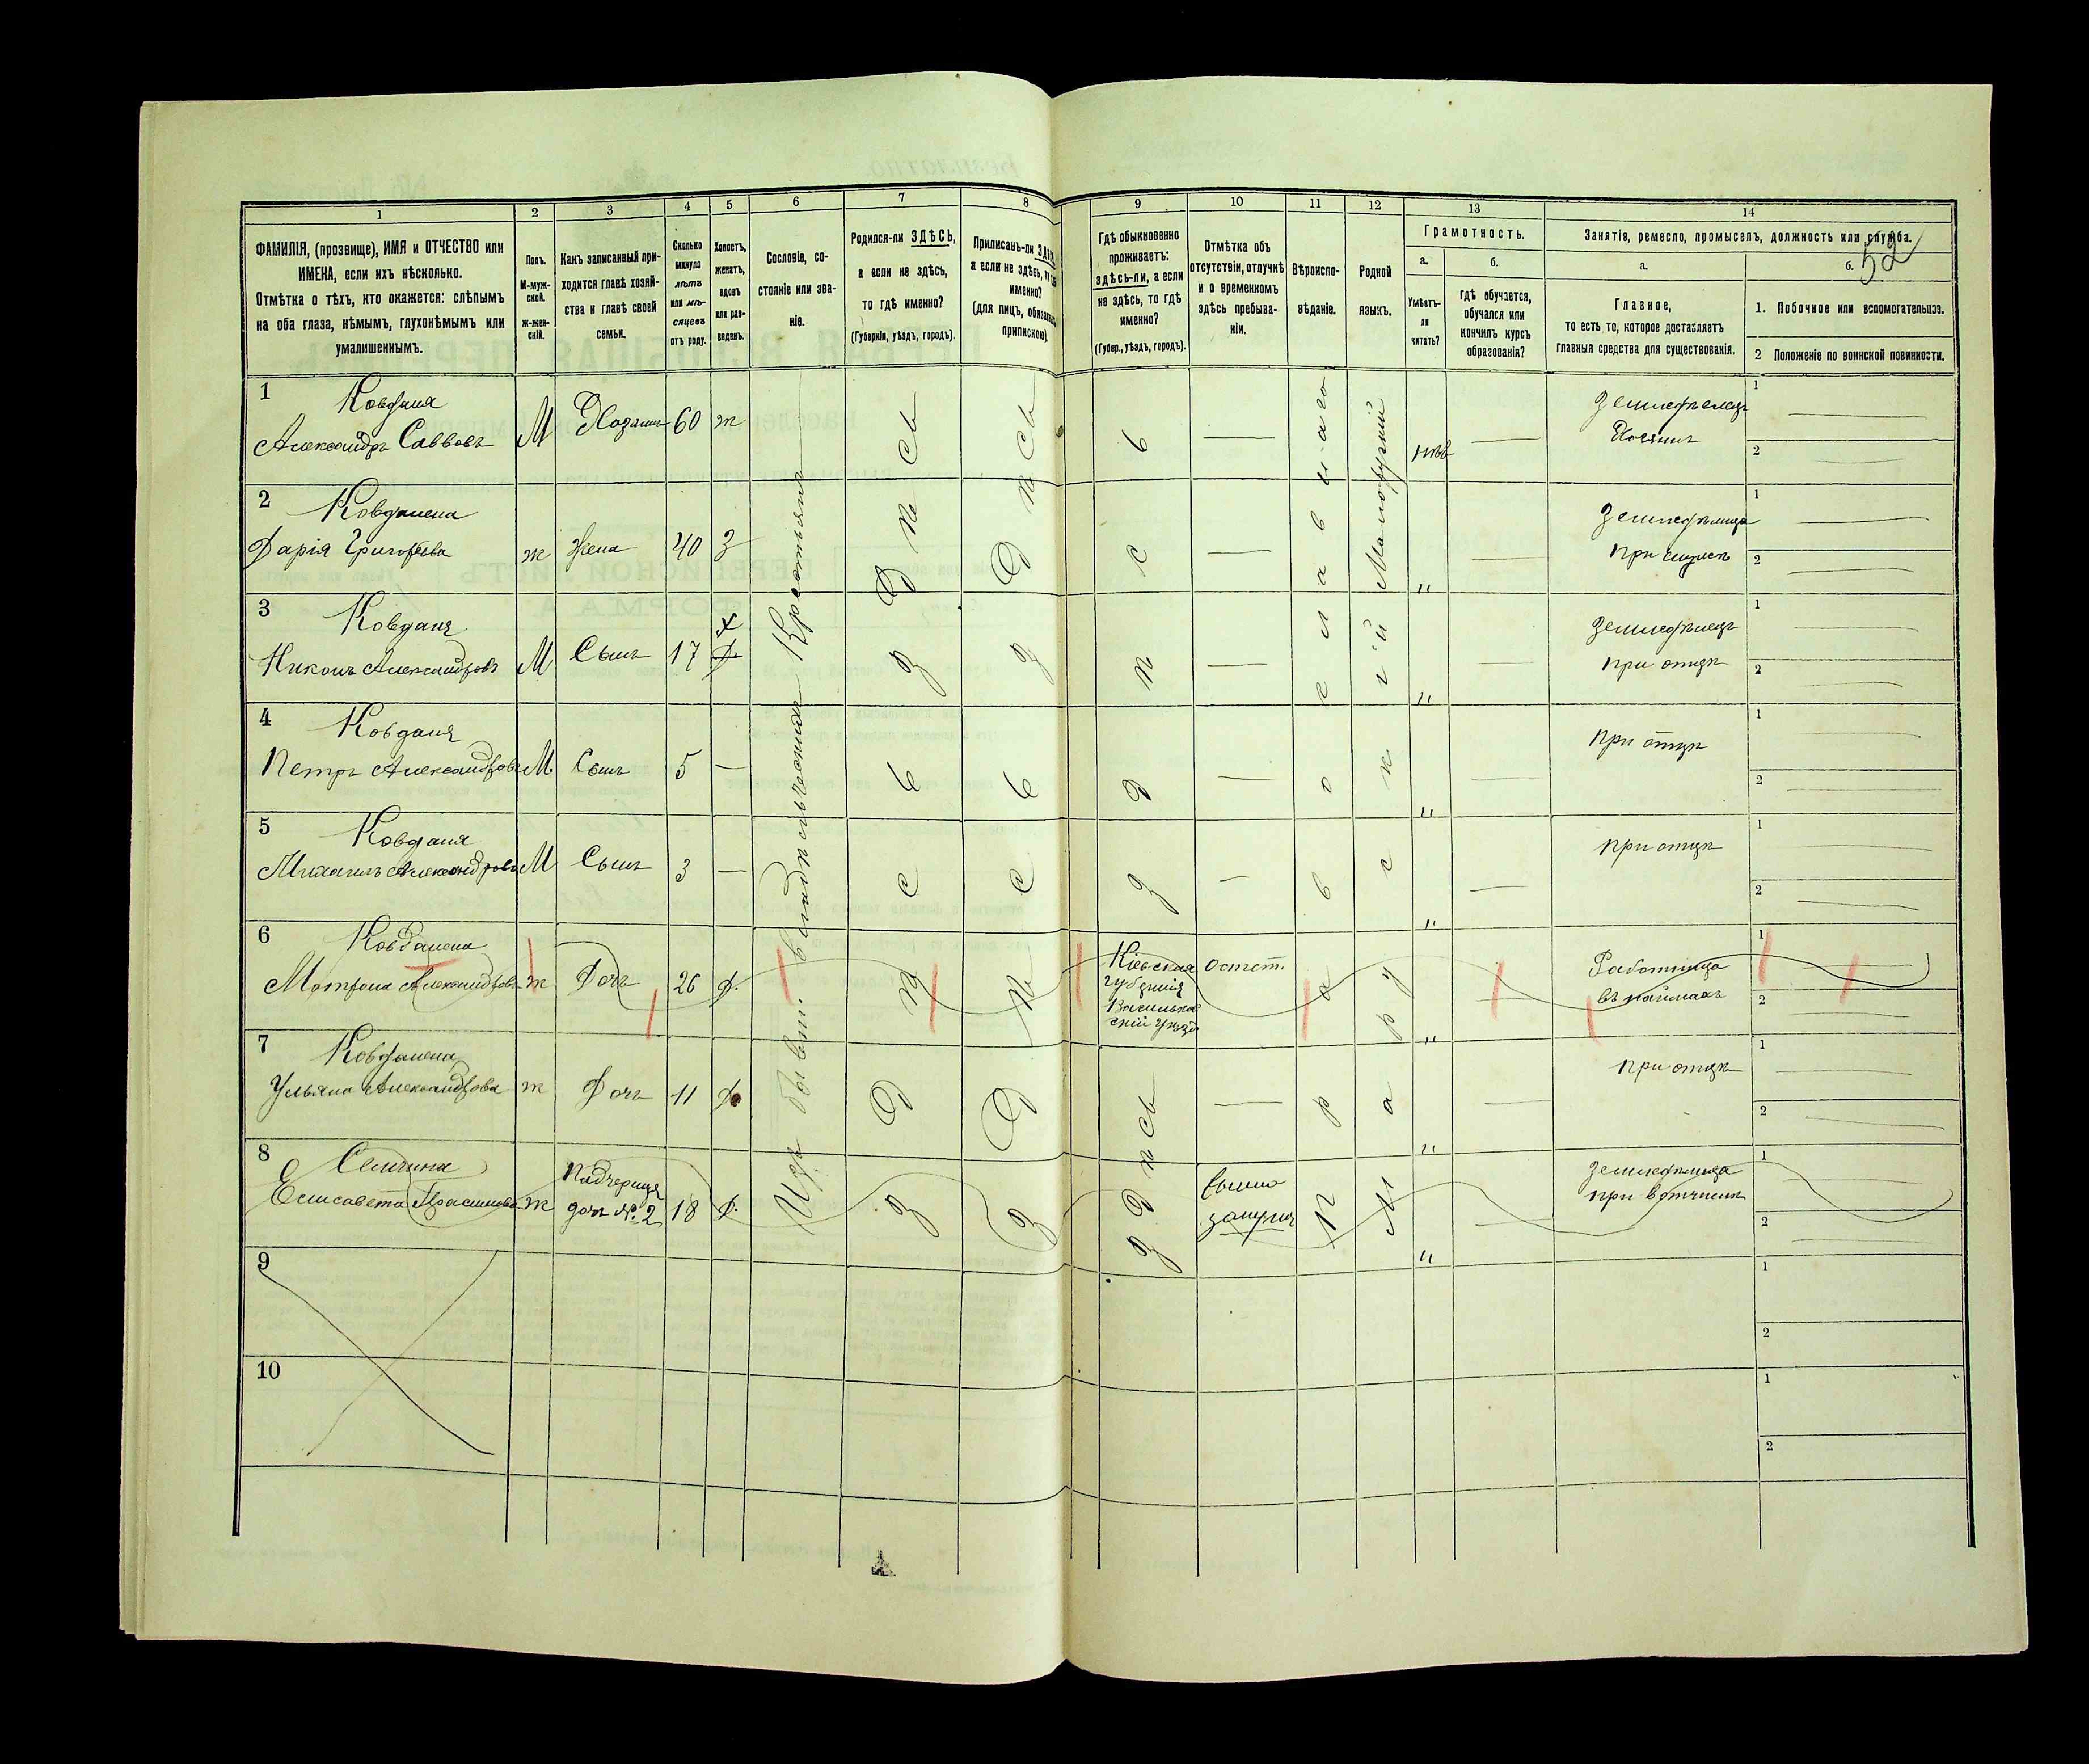 52
1 2 3 4 5 6 7 8 9 10 11 12 13 14
ФАМИЛІЯ, (прозвище), ИМЯ и ОТЧЕСТВО или
ИМЕНА, если ихъ нѣсколько.
Отмѣтка о тѣхъ, кто окажется: слѣпымъ
на оба глаза, нѣмымъ, глухонѣмымъ или
умалишеннымъ.
Полъ.
М-муж-
ской.
ж-жен-
скій.
Какъ записанный при-
ходится главѣ хозяй-
ства и главѣ своей
семьи.
Сколько
минуло
лѣтъ
или мѣ-
сяцевъ
отъ роду.
Холостъ,
женатъ,
вдовъ
или раз-
веденъ.
Сословіе, со-
стояніе или зва-
ніе.
Родился-ли ЗДѢСЬ,
а если не здѣсь,
то гдѣ именно?
(Губернія, уѣздъ, городъ).
Приписанъ-ли
а если не здѣсь,
именно?
(для лицъ,
припискою).
Гдѣ обыкновенно
проживаетъ:
здѣсь-ли, а если
не здѣсь, то гдѣ
именно?
(Губер., уѣздъ, городъ).
Отмѣтка объ
отсутствіи, отлучкѣ
и о временномъ
здѣсь пребыва-
ніи.
Вѣроиспо-
вѣданіе.
Родной
языкъ.
Грамотность.
а.
Умѣетъ-
ли
читать?
б.
Гдѣ обучается,
обучался или
кончилъ курсъ
образованія?
Занятія, ремесло, промыселъ, должность или служба.
а.
Главное,
то есть то, которое доставляетъ
главныя средства для существованія.
б.
1. Побочное или вспомогательное.
2 Положеніе по воинской повинности.
1 Ковганя
Александръ Саввовъ М Хозяинъ 60 ж
Изъ бывш. владѣльческихъ Крестьянъ
здѣсь здѣсь здѣсь
Православнаго
Малорускій
нѣтъ
Земледѣлецъ
Хозяинъ
1
2
2
Дарія Григорьева ж Жена 40 З "
Земледѣлица
при мужѣ
1
2
3 Ковганя
Никонъ Александровъ М Сынъ 17 Х "
Земледѣлецъ
при отцѣ
1
2
4 Ковганя
Петръ Александровъ М Сынъ 5 — "
при отцѣ
1
2
5 Ковганя
Михаилъ Александровъ М Сынъ 3 — "
при отцѣ
1
2
6
Матрона Александрова ж Дочь 26 Д.
здѣсь здѣсь
Кіевская
губернія
Васильков
скій уѣздъ
Отсут. "
Работница
въ наймахъ
1
2
7
Ульяна Александрова ж Дочь 11 Д.
здѣсь "
при отцѣ
1
2
8
Елисавета ж
Падчерица
дочь № 2 18 Д.
"
земледѣлица
при вотчимѣ
1
2
9
1
2
10
1
2